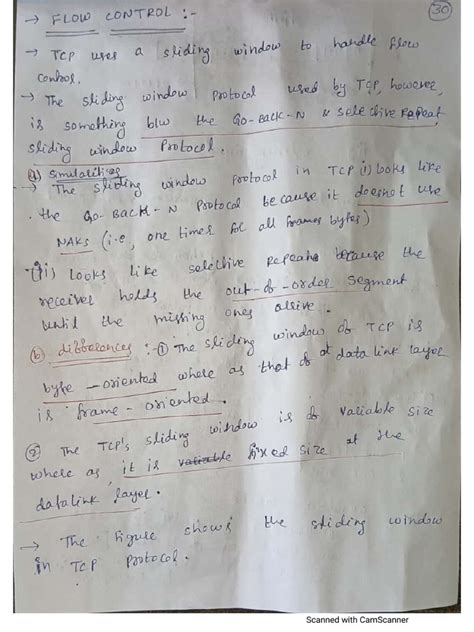 30
→ FLOW CONTROL :-
→ TCP uses a sliding window to handle flow
control.
→ The sliding window Protocol used by TCP, however,
is something b/w the Go-Back-N & selective Repeat
sliding window Protocol.
(a) Similarities
→ The sliding window Protocol in TCP (i) looks like
the Go-Back-N Protocol because it doesnot use
NAKs (i.e, one times for all frames bytes)
(ii) Looks like selective Repeat because the
receiver holds the out-of-order segment
until the missing ones arrive.
(b) differences :- ① The sliding window of TCP is
byte-oriented where as that of at data link layer
is frame-oriented.
② The TCP's sliding window is of variable size
where as it is variable fixed size at the
datalink layer.
→ The figure shows the sliding window
in TCP Protocol.
Scanned with CamScanner